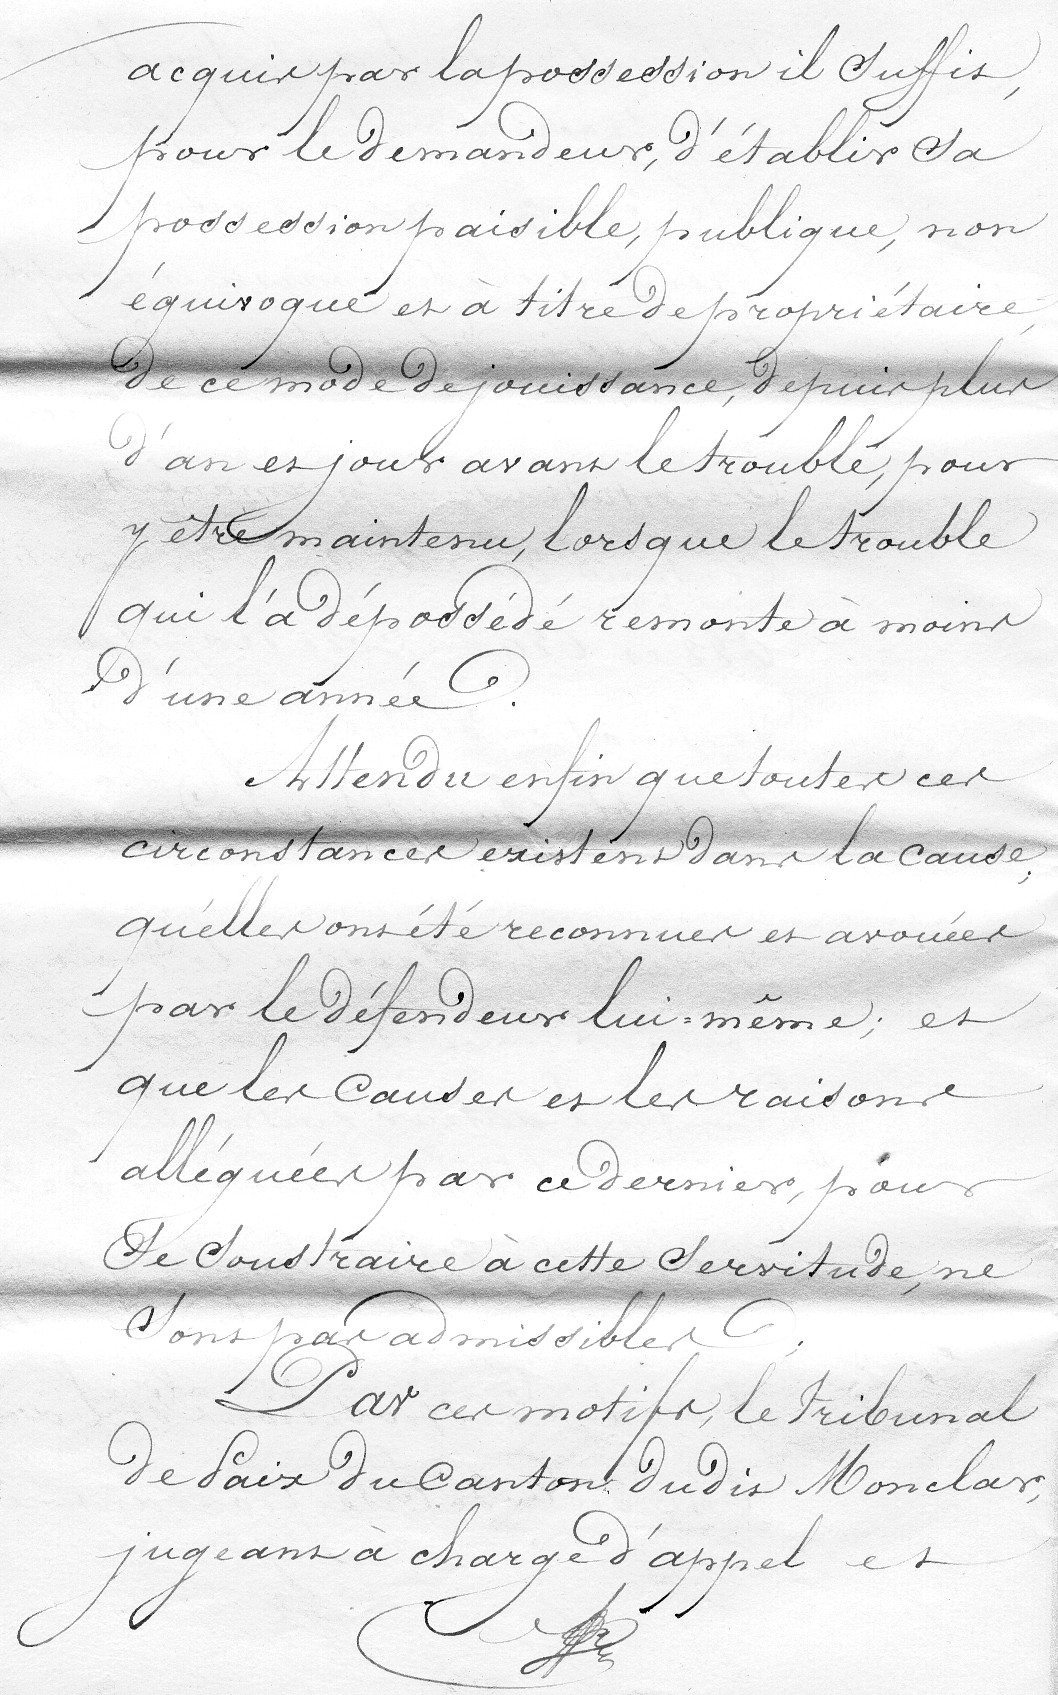 acquis par la possession il suffit,
pour le demandeur, d'établir sa
possession paisible, publique, non
équivoque et à titre de propriétaire,
de ce mode de jouissance, depuis plus
d'an et jour avant le trouble, pour
y être maintenu, lorsque le trouble
qui l'a dépossédé remonte à moins
d'une année.
Attendu enfin que toutes ces
circonstances existent dans la cause;
qu'élles ont été reconnues et avouées
par le défendeur lui=même; et
que les causes et les raisons
alléguées par ce dernier, pour
se soustraire à cette servitude, ne
sont pas admissibles.
Par ces motifs, le tribunal
de Paix du canton dudit Monclar,
jugeant à charge d'appel et